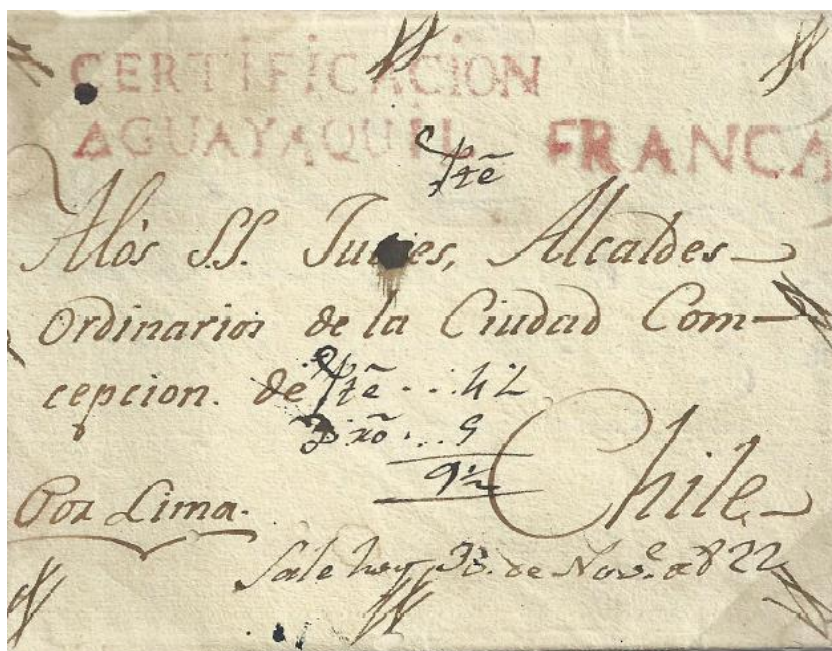 CERTIFICACION
AGUAYAQUIL FRANCA
Pte
A los S.S. Jueces, Alcaldes
Ordinarios de la Ciudad Com-
cepcion. de
Pte
9½
Chile
Por Lima.
Sale hoy de Nov.e de 822